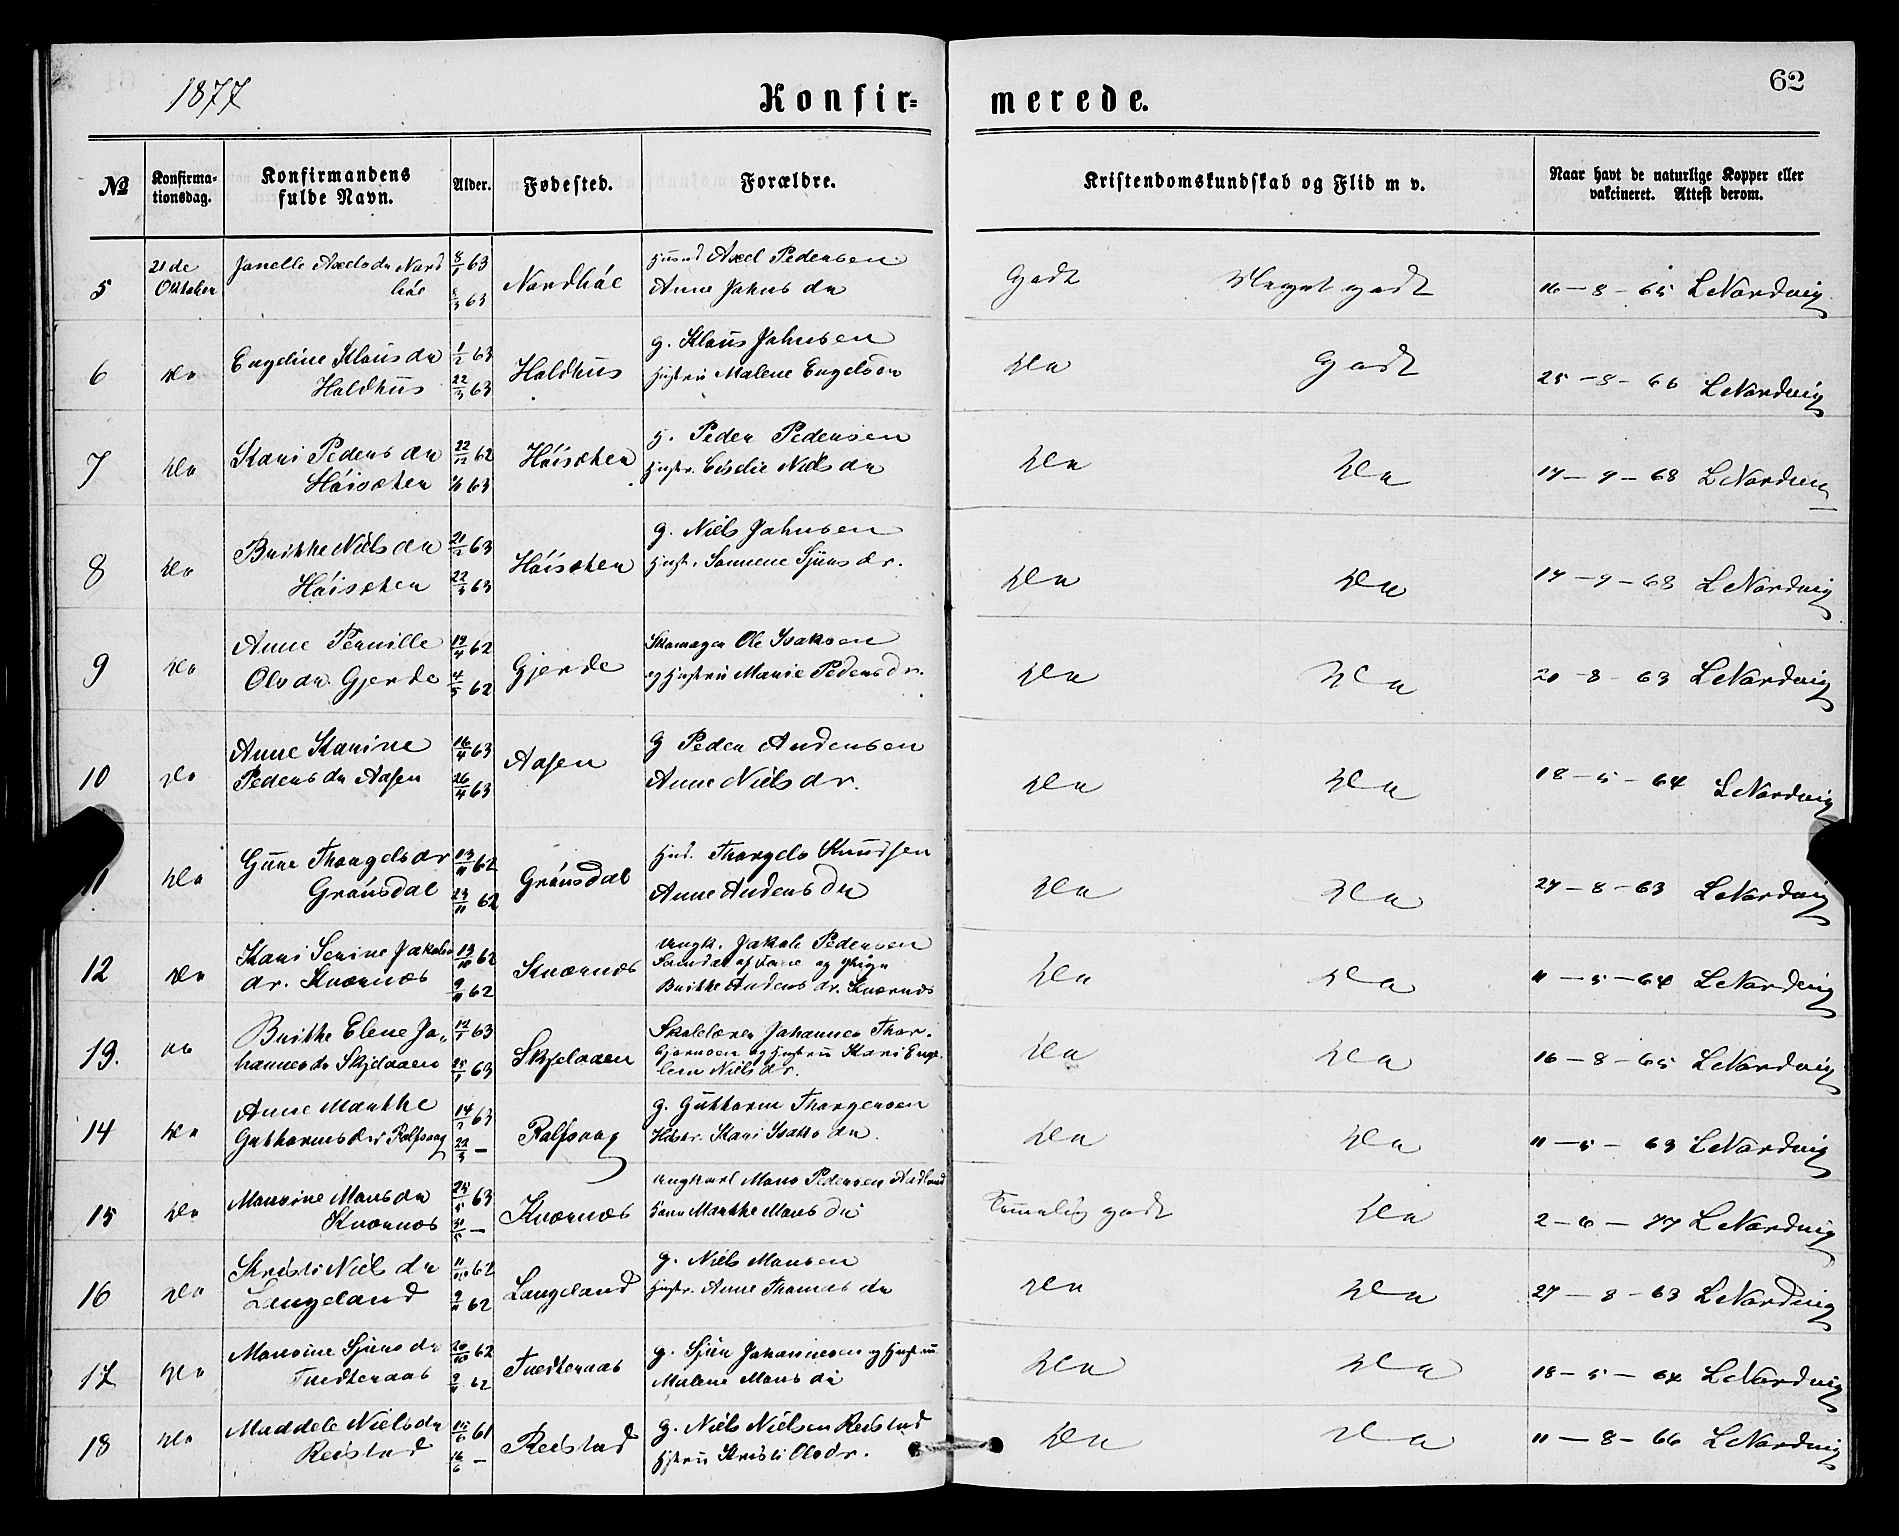 1877
Konfir-
merede.
62
№
Konfirma-
tionsdag.
Konfirmandens
fulde Navn.
Alder.
Fødested.
Forældre.
Kristendomskundskab og Flid m v.
Naar havt de naturlige Kopper eller
vakcineret. Attest derom.
5
21de
Oktober
Janelle Axelsdr Nord
höe
8/1 63
8/3 63
Nordhöe
Husmd Axel Pedersen
Anne Johnsdr
Godt
Meget godt
16-8-65 LNordvig
6
do
Engeline Klausdr
Holdhus
1/2 63
22/3 63
Holdhus
g. Klaus Johnsen
Hustru Malene Engelsdr
do
Godt
25-8-66 LNordvig
7
do
Kari Pedersdr
Höisæter
22/12 62
63
Höisæter
g. Peder Pedersen
Hustr. Nilsdr
do
do
17-9-68 LNordvig
8
do
Brithe Nilsdr
Höisæter
63
22/3 63
Höisæter
g. Niels Johnsen
Hust. Sjursdr.
do
do
17-9-68 LNordvig
9
do
Anne Pernille
Olsdr Gjerde
19/4 62
4/5 62
Gjerde
Skomager Ole Isaksen
og Hustru Marie Pedersdr.
do
do
20-8-63 LNordvig
10
do
Anne Karine
Pedersdr Aasen
16/4 63
26/4 63
Aasen
G Peder Andersen
Anne Nielsdr.
do
do
18-5-64 LNordvig
11
do
Thorgelsdr
Grönsdal
13/11 62
23/11 62
Grönsdal
Husd. Thorgels Knudsen
Anne Andersdr
do
do
27-8-63 LNordvig
12
do
Kari Serine Jakobs
dr. Kvernæs
13/10 62
9/11 62
Kvernæs
Ungk. Jakob Pedersen
af og Pige
Brithe Andersdr. Kvernæs
do
do
11-5-64 LNordvig
19.
do
Brithe Elene Jo-
hannesdr Skjelaaen
12/1 63
25/1 63
Skjelaaen
Skolelærer Johannes Thor-
bjørnsen og Hustru Kari Enge-
len Nielsdr.
do
do
16-8-65 LNordvig
14
do
Anne Marthe
Guthormsdr Rolfsvaag
14/2 63
22/3 —
Rolfsvaag
g. Guthorm Thorgersen
Hustr. Kari Isaksdr
do
do
11-5-63 LNordvig
15
do
Monsine Monsdr
Kvernæs
25/5 63
31/5 —
Kvernæs
Ungkarl Mons Pedersen Midland
Marthe Monsdr
Temmelig godt
do
2-6-77 LNordvig
16
do
Kristi Nielsdr
Langeland
11/10 62
9/11 62
Langeland
g. Niels Monsen
Hustr. Anne Thomasdr
do
do
27-8-63 LNordvig
17
do
Monsine Sjursdr
Tvedteraas
20/10 62
9/11 62
Tvedteraas
g. Sjur Johannesen og Hustru
Malene Monsdr
do
do
18-5-64 LNordvig
18
do
Maddele Nielsdr
Reistad
15/5 61
16/6 —
Reistad
g. Niels Nielsen Reistad
Hustru Kristi Olsdr.
do
do
11-8-66 LNordvig